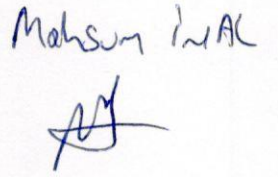 Mahsum İNAL